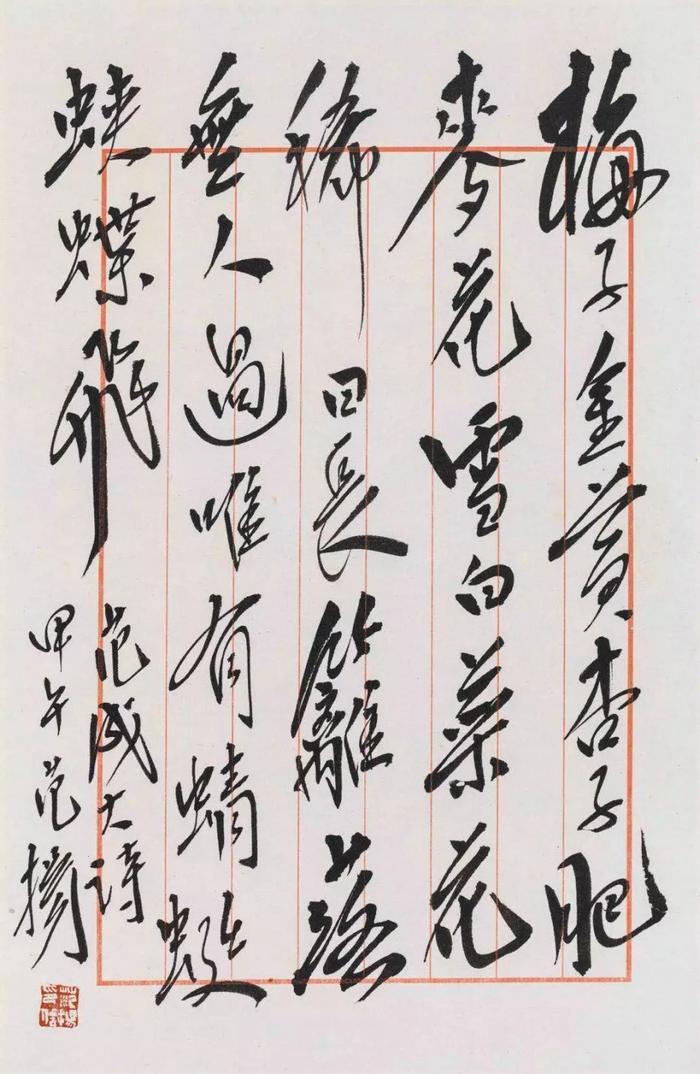 梅子金黄杏子肥
麦花雪白菜花
稀日长篱落
无人过唯有蜻蜓
蛱蝶飞
范成大诗
甲午范扬